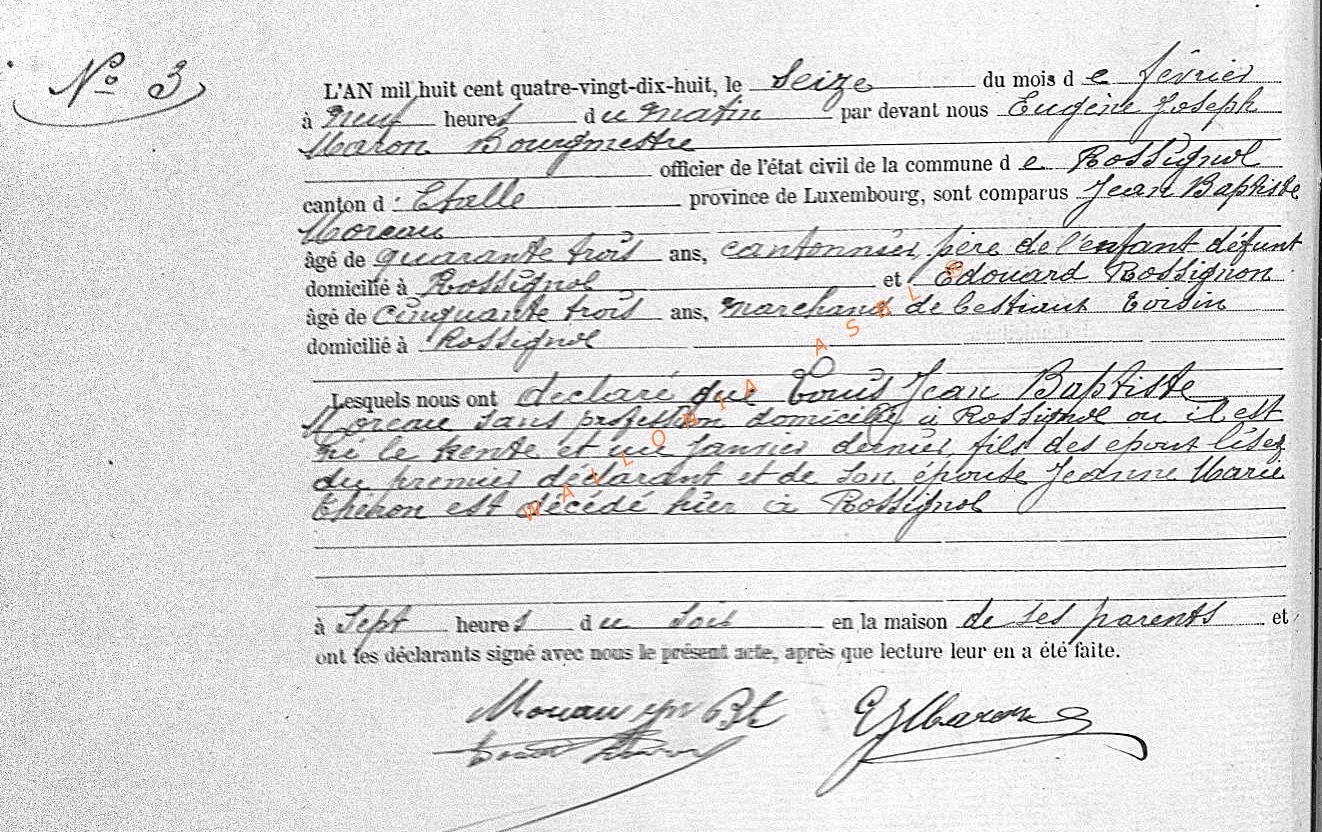 N° 3
L'AN mil huit cent quatre-vingt-dix-huit, le Seize du mois d e février
à neuf heures du matin par devant nous Eugène Joseph
Maron Bourgmestre
officier de l'état civil de la commune d e Rossignol
canton d' Etalle province de Luxembourg, sont comparus Jean Baptiste
Moreau
âgé de quarante trois ans, cantonnier, père de l'enfant défunt
domicilié à Rossignol et Edouard Rossignon
âgé de Cinquante trois ans, marchand de bestiaux voisin
domicilié à Rossignol
Lesquels nous ont déclaré que Louis Jean Baptiste
Moreau sans profession domicilié à Rossignol ou il est
né le trente et un janvier dernier, fils des epoux lisez
du premier déclarant et de son épouse Jeanne Marie
est décédé hier à Rossignol
à Sept heures du soir en la maison de ses parents et
ont les déclarants signé avec nous le présent acte, après que lecture leur en a été faite.
EJMaron
WALLONIA ASBL ©